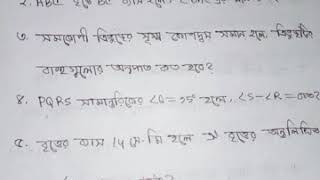 ২. ABC বৃত্তে BC ব্যাস হলে
৩. সমকোণী ত্রিভুজের সূক্ষ্ম কোণদ্বয় সমান হলে, ত্রিভুজটির
বাহুগুলোর অনুপাত কত হবে?
৪. PQRS সামান্তরিকের ∠Q = হলে, ∠S-∠R = কত?
৫. বৃত্তের ব্যাস 14 সে.মি হলে ঐ বৃত্তের